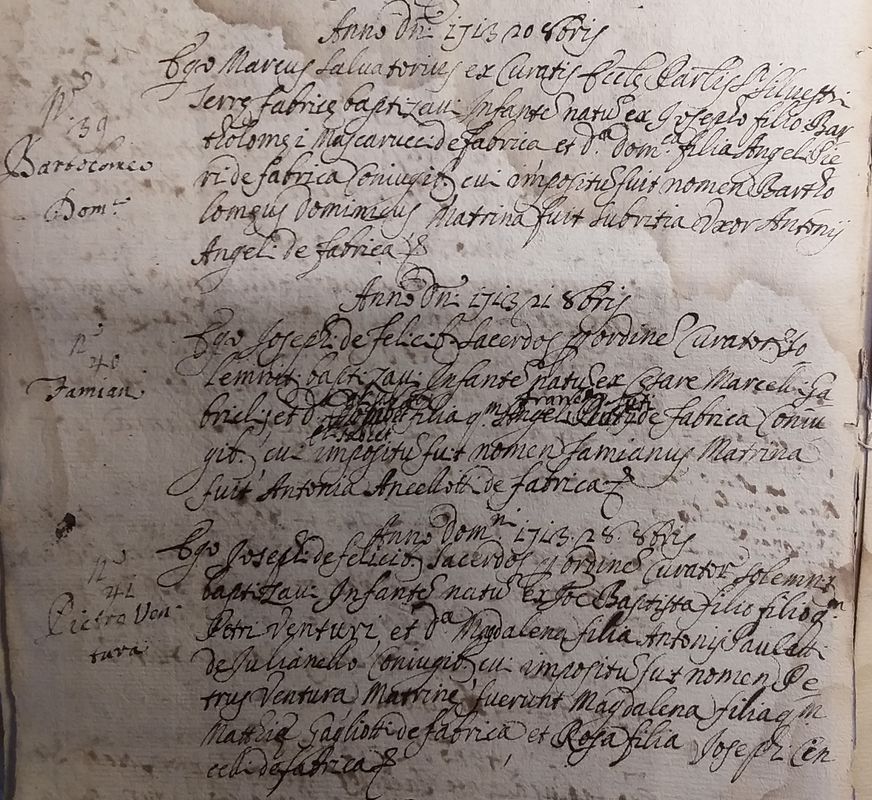 Anno Dñi 1713 20 8bris
Nº 39
Bartolomeo
Domco
Ego Marcus Salvatorius ex Curatis Eccle Parlis S. Silvestri
Terrę Fabricę baptizavi Infante natu ex Josepho filio Bar
tholomęi Mascarucci de fabrica et da domca filia Angeli Pie
ri de fabrica Coniugib. cui impositu fuit nomen Bartho
lomęus Dominicus Matrina fuit Subritia Uxor Antonij
Angeli de fabrica
Anno Dñi 1713 21 8bris
nº 40
Famiani
Ego Joseph de felicib. Sacerdos ordine Curator. So
lemnit. baptizavi Infante natu ex Cesare Marcelli Ga
brielij et da filia qm Angeli de fabrica Coniu
gib. cui impositu fuit nomen Famianus Matrina
fuit Antonia Ancellotti de fabrica
Anno Domni 1713. 28. 8bris
nº 41
Pietro Ven
tura
Ego Joseph de felicib. Sacerdos ordine Curator. solemnit
baptizavi Infante natu ex Joe Baptista filio filio qm
Petri Venturi et da Magdalena filia Antonij Pauletti
de Julianello Coniugib. cui impositu fuit nomen Pe
trus Ventura Matrinę fuerunt Magdalena filia qm
Matthię Gagliotti de fabrica et Rosa filia Joseph Cen
celli de fabrica